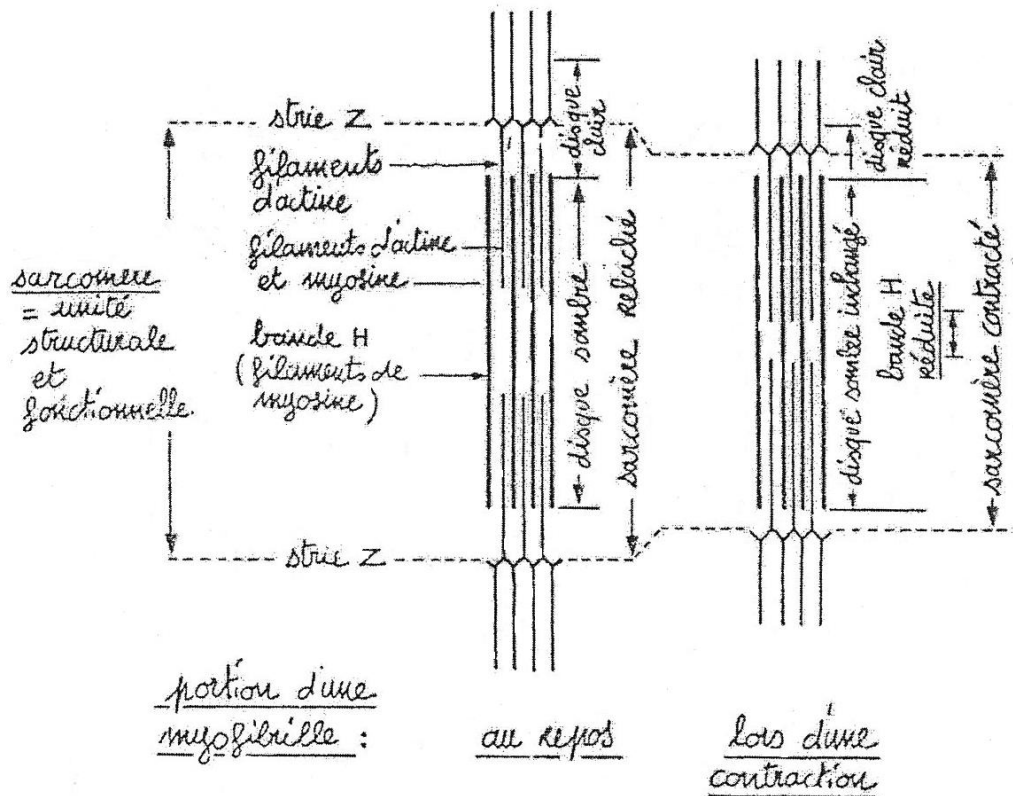 strie Z
filaments
d'actine
filaments d'actine
et myosine
sarcomère
= unité
structurale
et
fonctionnelle
bande H
(filaments de
myosine)
strie Z
disque
clair
disque sombre
sarcomère relâché
disque clair
réduit
disque sombre inchangé
bande H
réduite
sarcomère contracté
portion d'une
myofibrille :
au repos
lors d'une
contraction